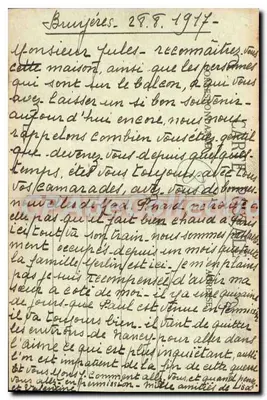 Bruyères. 28.8.1917.
Monsieur Jules - reconnaîtrez vous
cette maison, ainsi que les personnes
qui sont sur le balcon, à qui vous
avez laisser un si bon souvenir
aujourd'hui encore, nous nous
rappelons combien vous étiez gentil
que devenez vous depuis quelques
temps, êtes vous toujours avec tous
vos camarades, avez vous de bonnes
elle pas qu'il fait bien chaud
ici tout va son train, nous sommes
ment occupés depuis un mois
la famille est ici - je m'en plains
pas je suis récompensée d'avoir ma
sœur à côté de moi - il y a une quinzaine
de jours que Paul est venue en permission
il va toujours bien - il vient de quitter
les environs de Nancy pour aller dans
l'aisne ce qui est plus inquiétant, aussi
l'on est impatient de la fin de cette guerre
et vous Comment allez vous, et quand
vous allez en permission - mille amitiés de